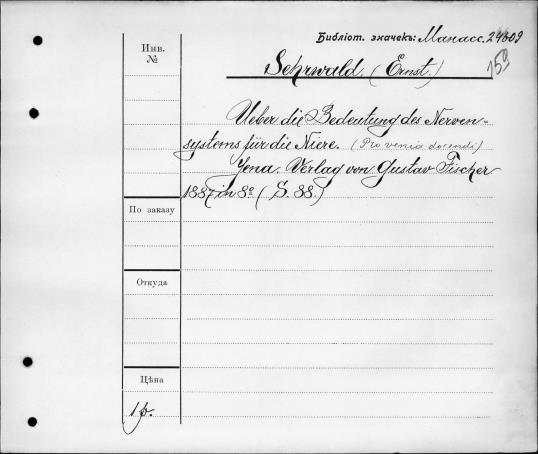 Библіот. значекъ: Манасс. 24609
Инв.
№
Sehrwald. (Ernst.)
159
Ueber die Bedeutung des Nerven-
systems für die Niere. (Pro venia docendi)
Jena. Verlag von Gustav Fischer
1887, in 8º (S. 88.)
По заказу
Откуда
Цѣна
1 р.